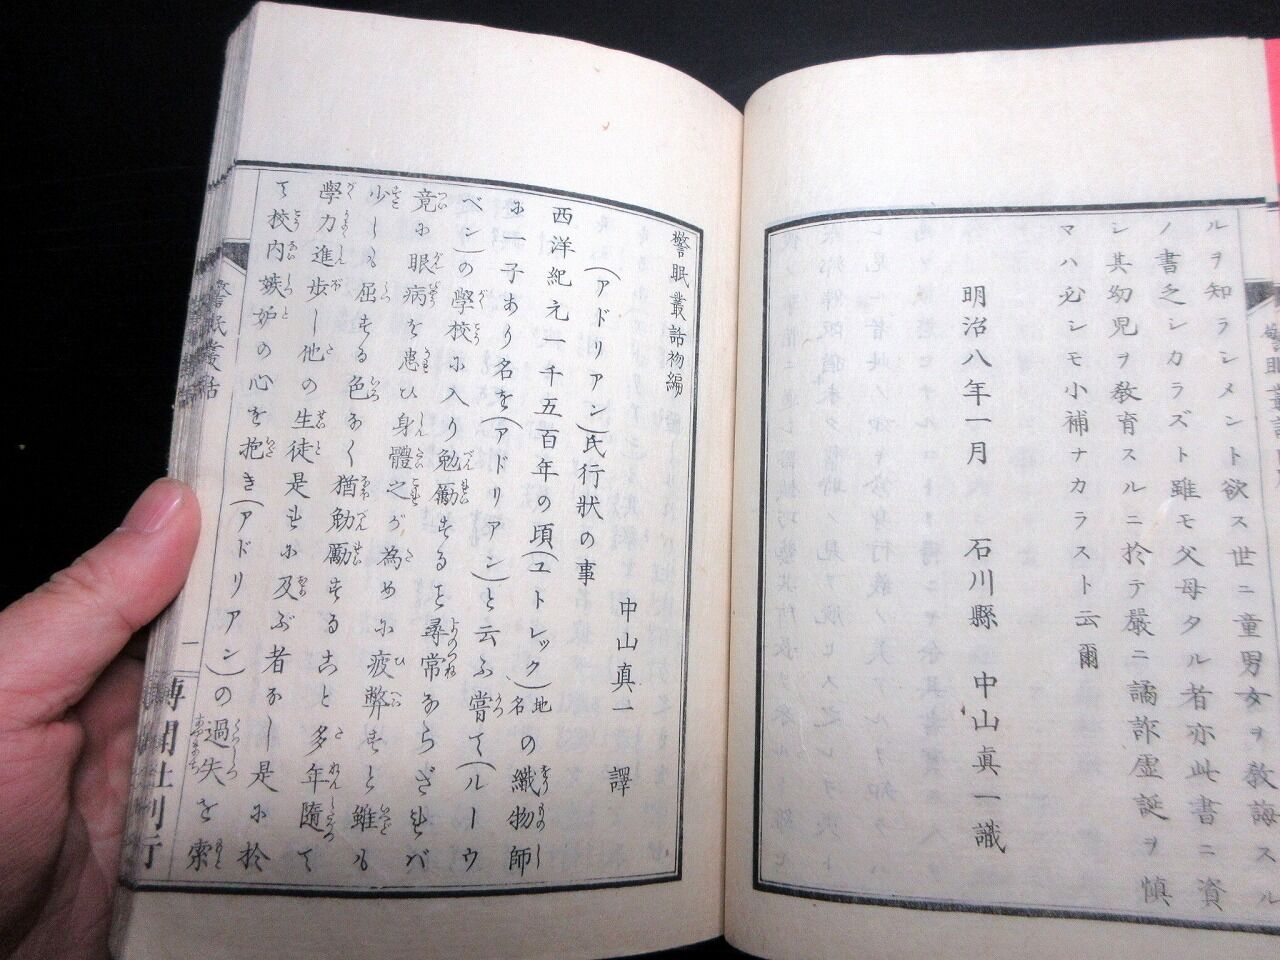 ルヲ知ランメント欲ス世ニ童男女ヲ教誨スル
ノ書乏シカラズト雖モ父母タル者亦此書ニ資
シ其幼児ヲ教育スルニ於テ嚴ニ譎詐虚誕ヲ慎
マハ必シモ小補ナカラスト云爾
明治八年一月 石川縣 中山真一識
警眠叢話初編
中山真一 譯
(アドリアン)氏行状の事
西洋紀元一千五百年の頃(ユトレック)地名の織物師
に一子あり名を(アドリアン)と云ふ嘗て(ルーウ
ベン)の學校に入り勉勵するを尋常ならざれバ
竟に眼病を患ひ身體之が為めに疲弊すと雖も
少しも屈する色なく猶勉勵すること多年隨て
學力進歩し他の生徒是れに及ぶ者なし是に於
て校内嫉妒の心を抱き(アドリアン)の過失を索
警眠叢話
一